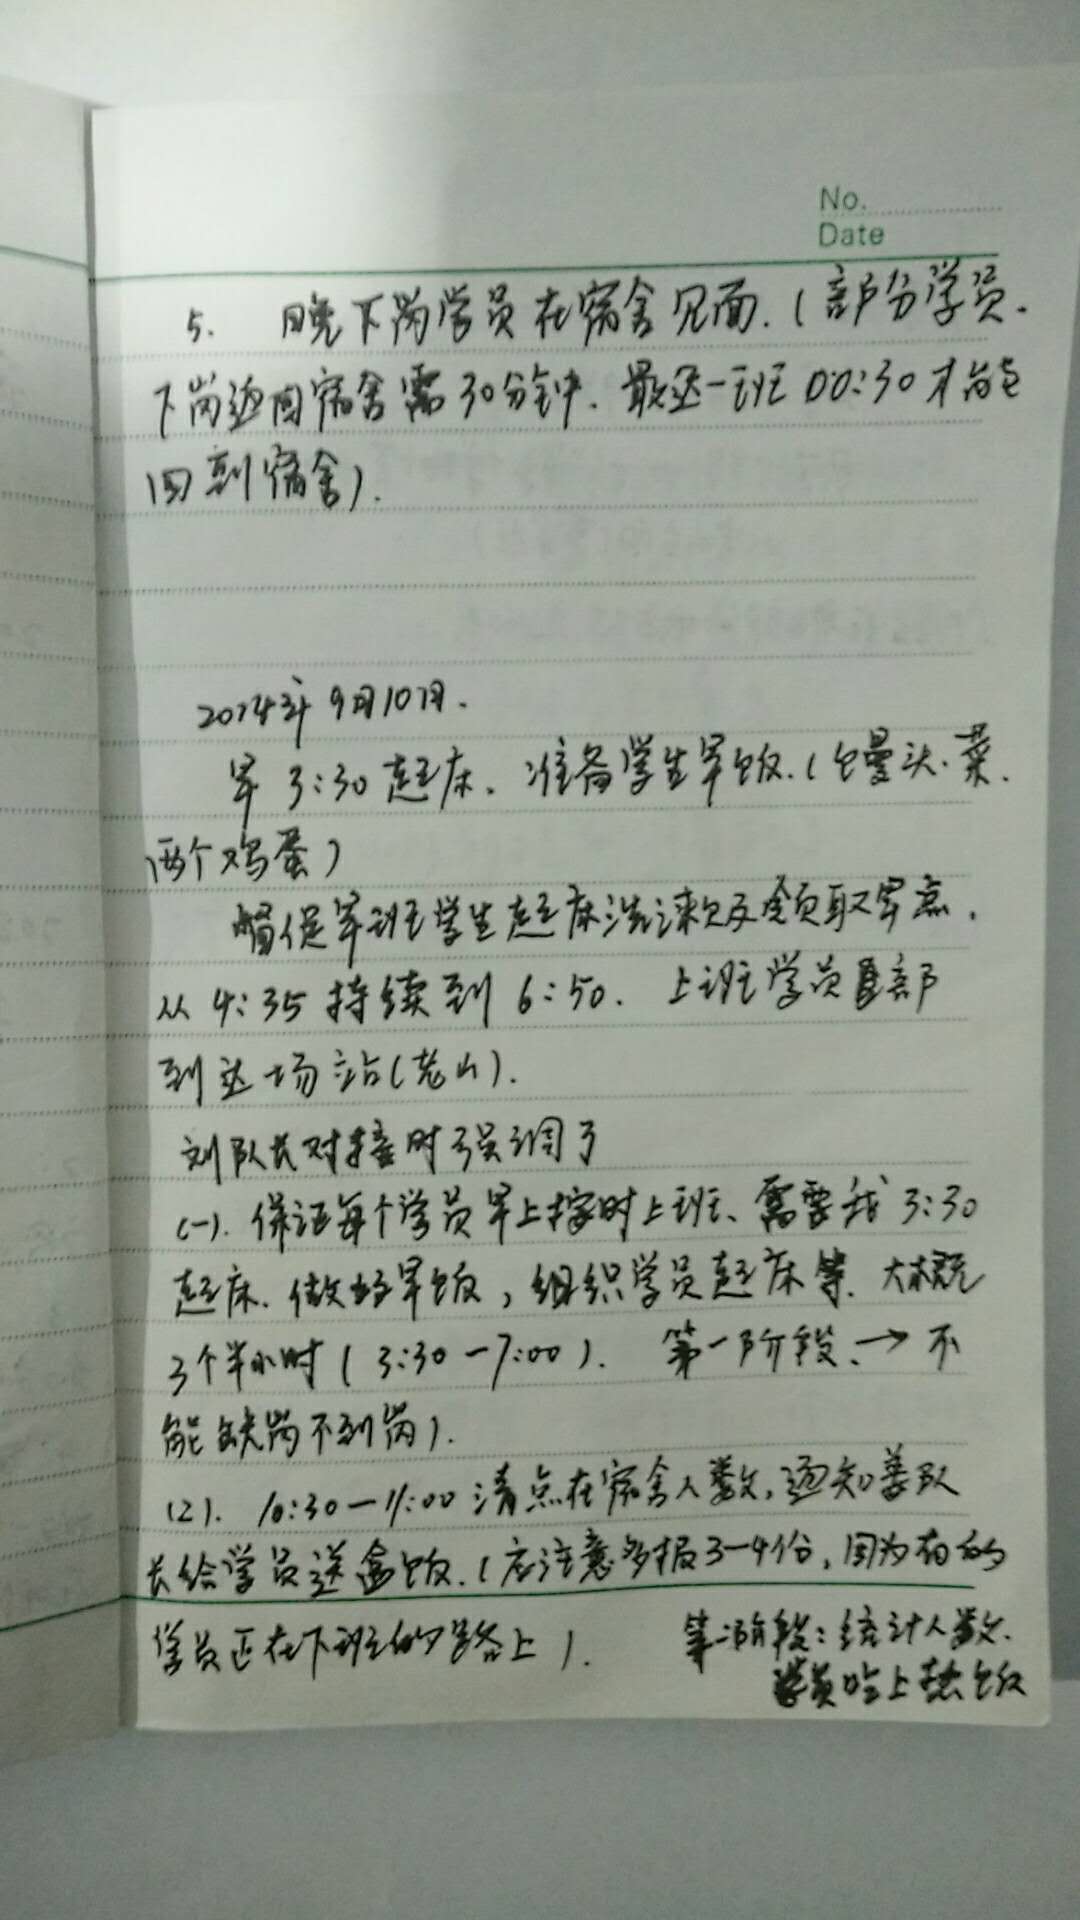 No.
Date
5. 晚下岗学员在宿舍见面.(部分学员.
下岗返回宿舍需30分钟.最迟一班00:30才能
回到宿舍).
2014年9月10日.
早3:30起床.准备学生早饭.(馒头.菜.
两个鸡蛋)
督促早班学生起床洗漱及领取早点.
从4:35持续到6:50. 上班学员全部
到达场站(老山).
刘队长对接时强调了
(一).保证每个学员早上按时上班、需要我3:30
起床.做好早饭,组织学员起床等.大概
3个半小时(3:30—7:00). 第一阶段.→不
能缺岗不到岗).
(2). 10:30—11:00清点在宿舍人数,通知姜队
长给学员送盒饭.(应注意多报3—4份,因为有的
学员正在下班的路上). 第二阶段:统计人数.
学员吃上热饭